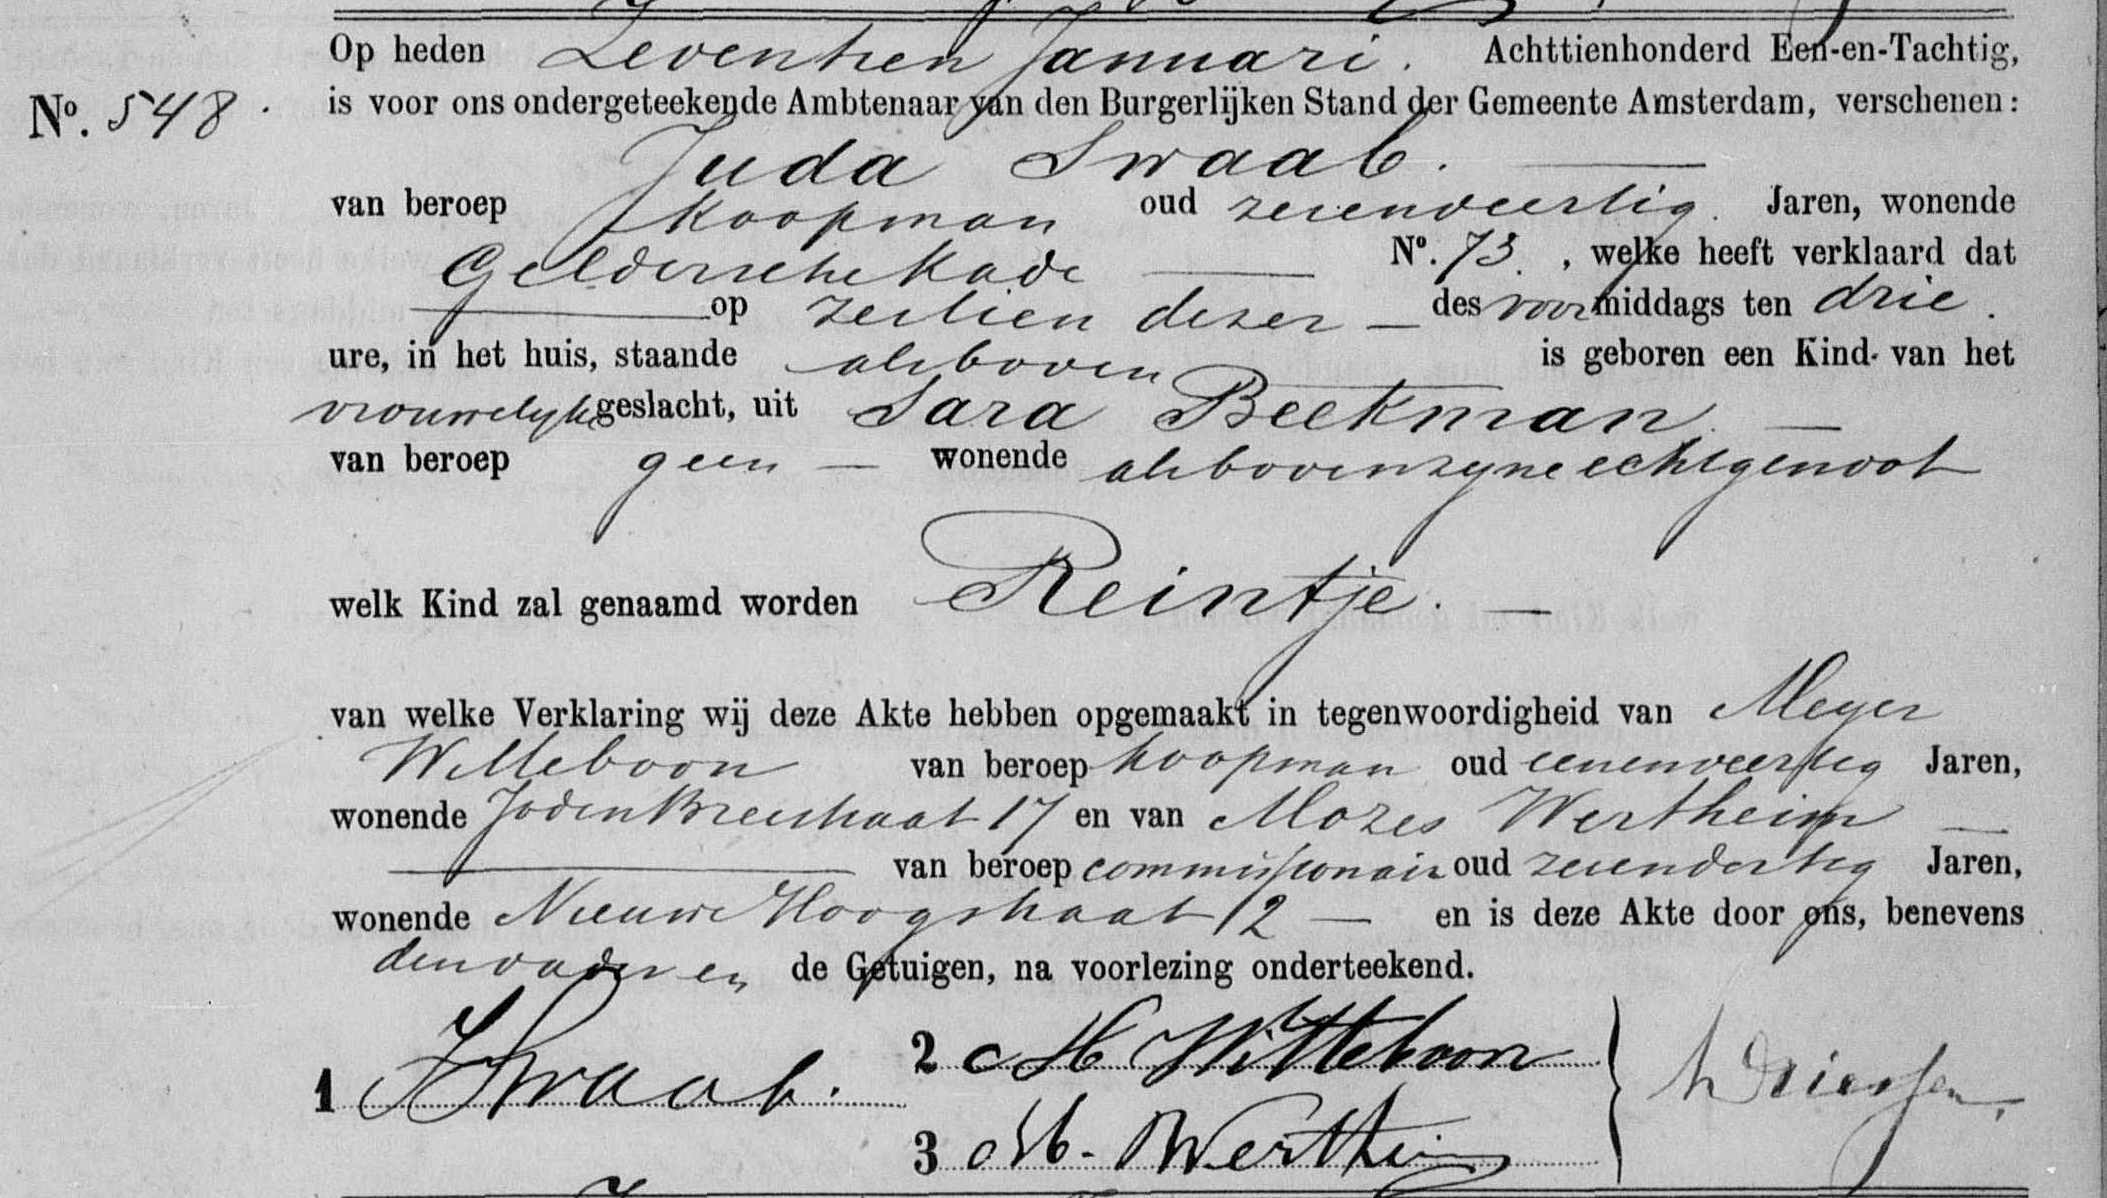 Op heden Zeventien Januari. Achttienhonderd Een-en-Tachtig,
No. 548. is voor ons ondergeteekende Ambtenaar van den Burgerlijken Stand der Gemeente Amsterdam, verschenen:
Juda Swaab.
van beroep koopman oud zevenveertig. Jaren, wonende
Geldersche Kade No. 73. , welke heeft verklaard dat
op zestien dezer des voormiddags ten drie.
ure, in het huis, staande alsboven is geboren een Kind van het
vrouwelijk geslacht, uit Sara Beekman.
van beroep geen wonende alsboven zyne echtgenoot
welk Kind zal genaamd worden Reintje.
van welke Verklaring wij deze Akte hebben opgemaakt in tegenwoordigheid van Meyer
Witteboon van beroep koopman oud eenenveertig Jaren,
wonende Joden Breestraat 17 en van Mozes Wertheim
van beroep commissionair oud zevendertig Jaren,
wonende Nieuwe Hoogstraat 12 en is deze Akte door ons, benevens
den vader en de Getuigen, na voorlezing onderteekend.
1 J Swaab.
2 M Witteboon
3 M. Wertheim
Driessen